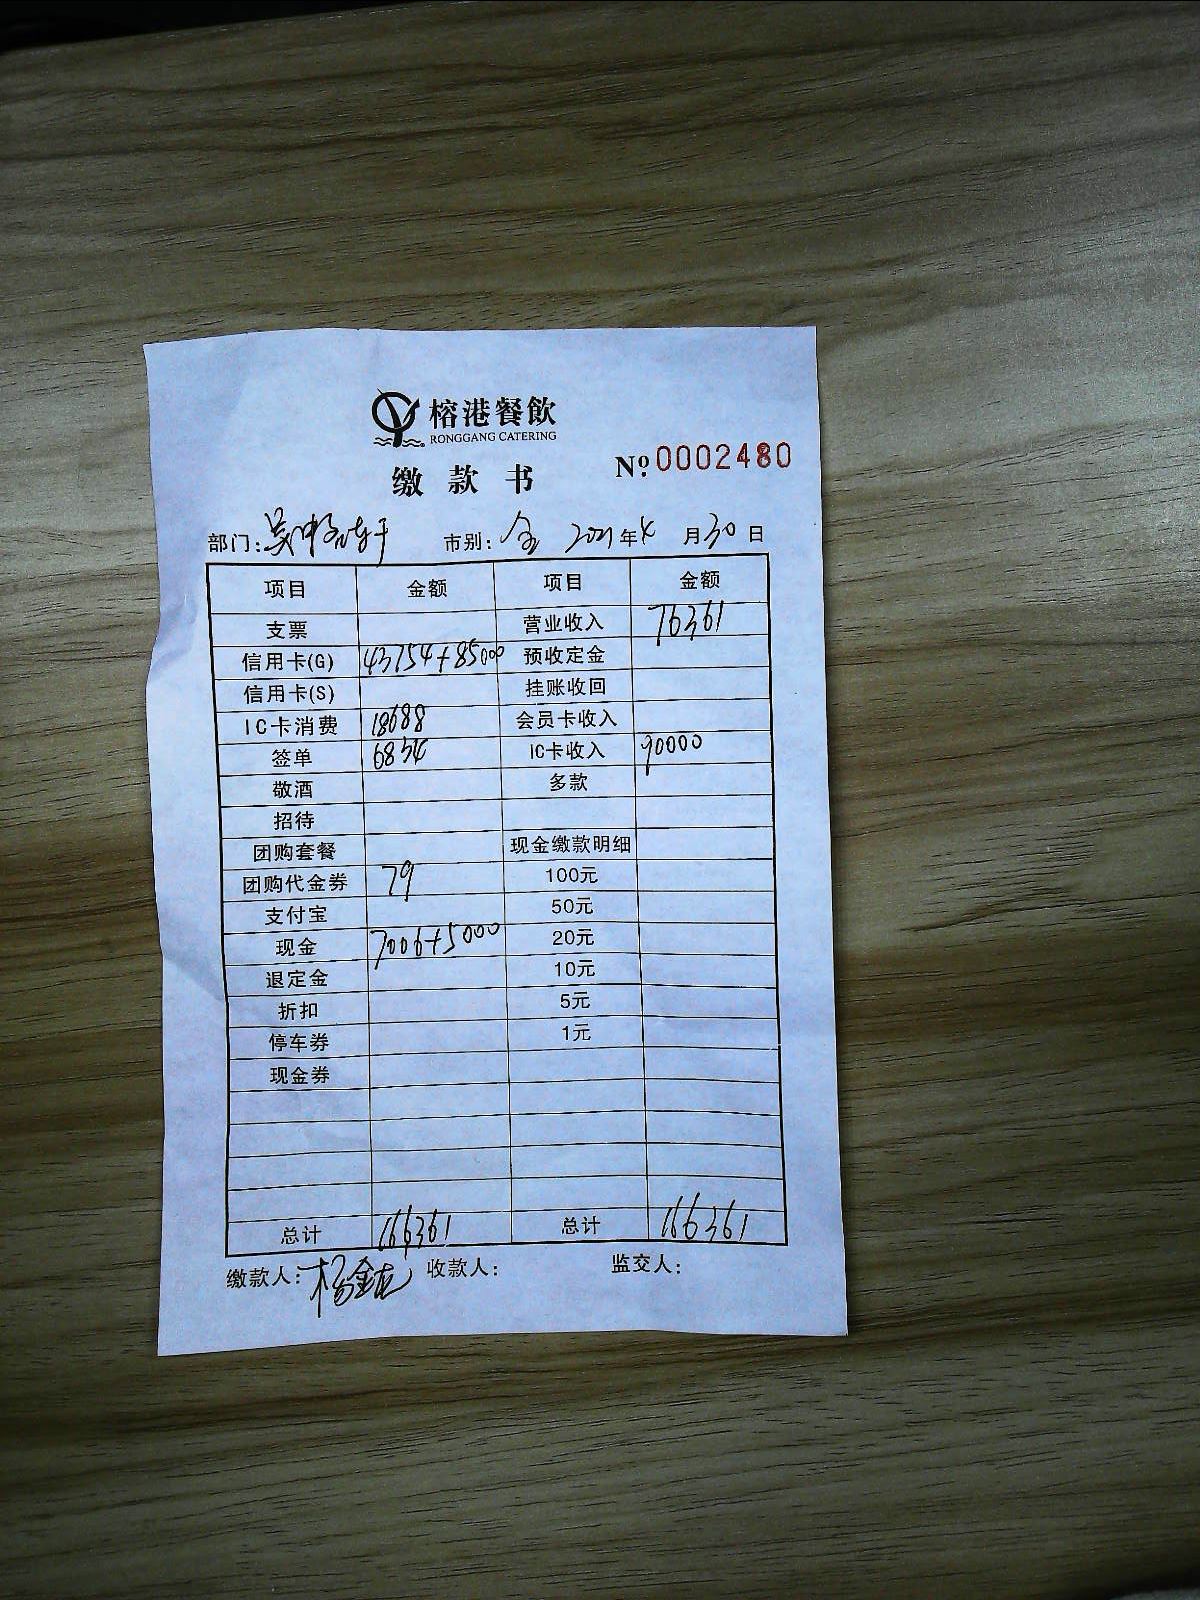 榕港餐飲
RONGGANG CATERING
缴款书
Nº 0002480
部门: 市别: 全 2021年4月30日
项目 金额 项目 金额
支票 营业收入 76361
信用卡(G) 43754+85000 预收定金
信用卡(S) 挂账收回
IC卡消费 18688 会员卡收入
签单 6834 IC卡收入 90000
敬酒 多款
招待
团购套餐 现金缴款明细
团购代金券 79 100元
支付宝 50元
现金 7006+5000 20元
退定金 10元
折扣 5元
停车券 1元
现金券
总计 166361 总计 166361
缴款人: 杨金龙 收款人: 监交人: